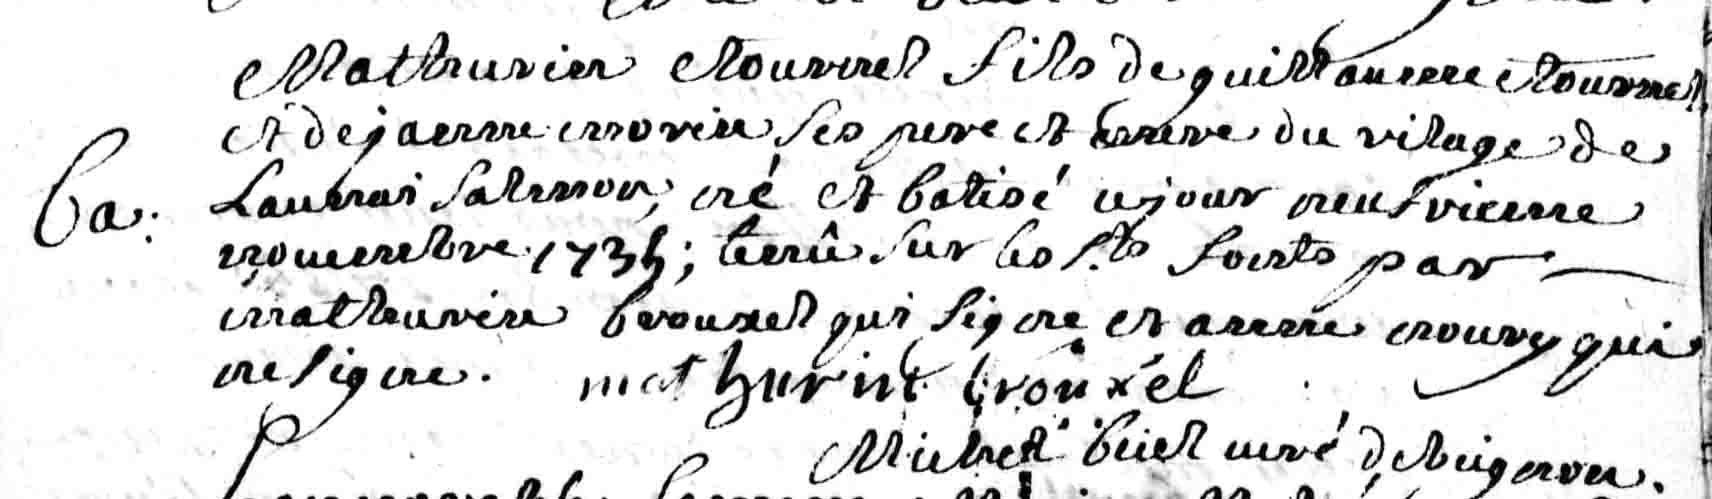 Mathurin Nourrel fils de guillaume Nourrel
et de jeanne morin ses pere et mere du vilage de
Launai Salmon, né et batisé ce jour neufvieme
novembre 1735; tenû sur les Sts fonts par
mathurin brouxel qui signe et anne noury qui
ne signe. mathurin brouxel
Ba:
Michel buet curé de